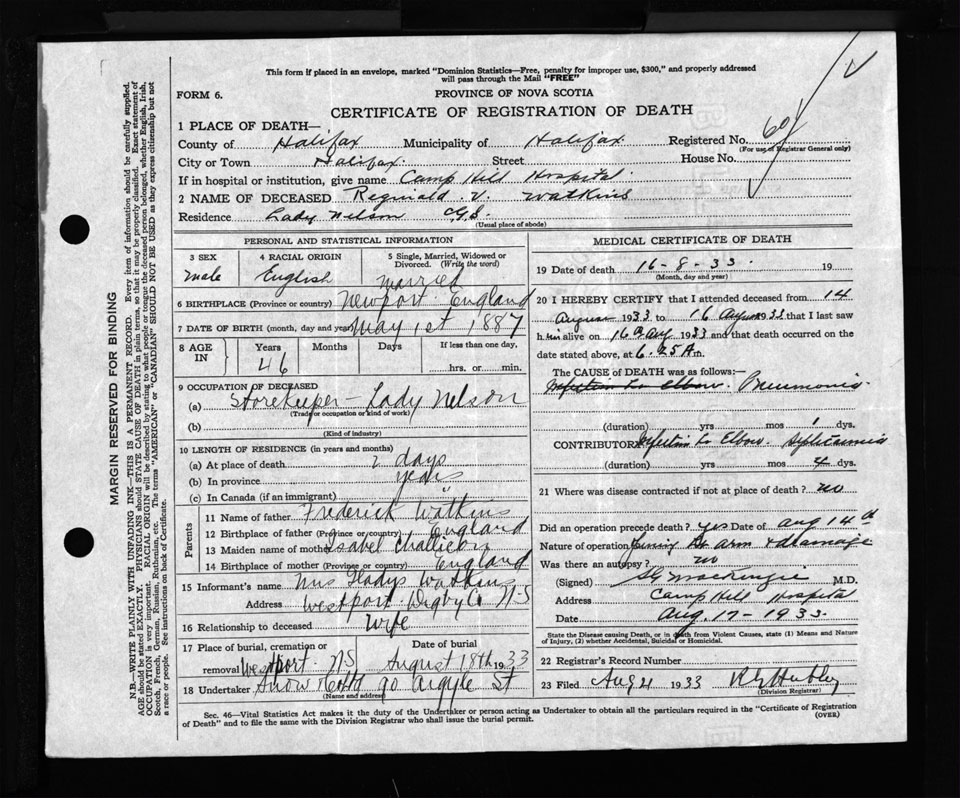 This form if placed in an envelope, marked "Dominion Statistics—Free, penalty for improper use, $300," and properly addressed
will pass through the Mail "FREE"
FORM 6.
PROVINCE OF NOVA SCOTIA
CERTIFICATE OF REGISTRATION OF DEATH
1 PLACE OF DEATH—
County of Halifax Municipality of Halifax Registered No.
(For use of Registrar General only)
City or Town Halifax. Street House No.
If in hospital or institution, give name Camp Hill Hospital.
2 NAME OF DECEASED Reginald V. Watkins
Residence Lady Nelson C.G.S.
(Usual place of abode)
PERSONAL AND STATISTICAL INFORMATION
3 SEX male
4 RACIAL ORIGIN English
5 Single, Married, Widowed or Divorced. (Write the word) married
6 BIRTHPLACE (Province or country) Newport. England
7 DATE OF BIRTH (month, day and year) May 1st 1887
8 AGE IN Years 46 Months Days If less than one day, hrs. or min.
9 OCCUPATION OF DECEASED
(a) Storekeeper — Lady Nelson
(Trade or occupation or kind of work)
(b)
(Kind of industry)
10 LENGTH OF RESIDENCE (in years and months)
(a) At place of death 2 days
(b) In province years
(c) In Canada (if an immigrant) "
Parents
11 Name of father Frederick Watkins
12 Birthplace of father (Province or country) England
13 Maiden name of mother Isabel
14 Birthplace of mother (Province or country) England
15 Informant's name Mrs Gladys Watkins
Address Westport. Digby Co N.S
16 Relationship to deceased Wife
17 Place of burial, cremation or removal Westport. N.S Date of burial August 18th 1933
18 Undertaker Snow 90 Argyle St
(Name and address)
MEDICAL CERTIFICATE OF DEATH
19 Date of death 16-8-33. 19
(Month, day and year)
20 I HEREBY CERTIFY that I attended deceased from 14
August 1933 to 16 Aug 1933 that I last saw
h im alive on 16 Aug 1933 and that death occurred on
date stated above, at 6.25 A m.
The CAUSE of DEATH was as follows:—
Infection Elbow. Pneumonia.
(duration) yrs mos 1 dys.
CONTRIBUTORY Infection Elbow. Septicaemia
(duration) yrs mos 4 dys.
21 Where was disease contracted if not at place of death? no
Did an operation precede death? yes Date of Aug 14th
Nature of operation arm & drainage
Was there an autopsy? no
(Signed) MacKenzie M.D.
Address Camp Hill Hospital
Date Aug. 17 - 1933.
State the Disease causing Death, or in death from Violent Causes, state (1) Means and Nature
of Injury, (2) whether Accidental, Suicidal or Homicidal.
22 Registrar's Record Number
23 Filed Aug 21 1933
(Division Registrar)
Sec. 46—Vital Statistics Act makes it the duty of the Undertaker or person acting as Undertaker to obtain all the particulars required in the "Certificate of Registration
of Death" and to file the same with the Division Registrar who shall issue the burial permit.
(OVER)
MARGIN RESERVED FOR BINDING
N.B.—WRITE PLAINLY WITH UNFADING INK—THIS IS A PERMANENT RECORD. Every item of information should be carefully supplied.
AGE should be stated EXACTLY. PHYSICIANS should STATE CAUSE OF DEATH in plain terms, so that it may be properly classified. Exact statement of
OCCUPATION is very important. RACIAL ORIGIN will be described by stating to what people or tongue the deceased person belonged, whether English, Irish,
Scotch, French, German, Russian, Ruthenian, etc. The terms "AMERICAN" or "CANADIAN" SHOULD NOT BE USED as they express citizenship but not
a race or people. See instructions on back of Certificate.